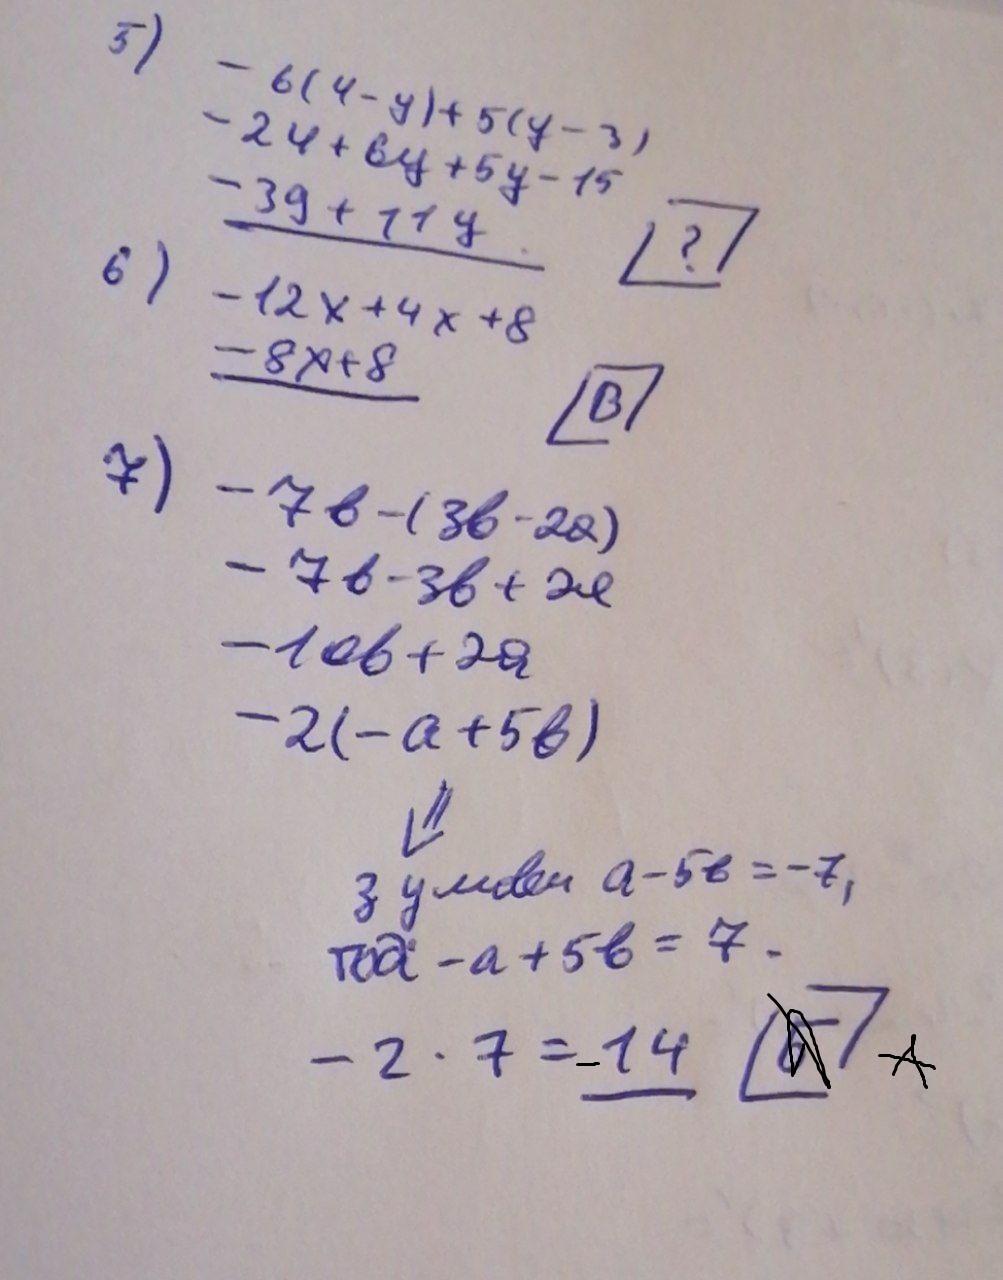 5)
- 6(4-y)+5(y-3)
-24+6y+5y-15
-39+11y
?
6)
-12x+4x+8
-8x+8
В
7)
-7b-(3b-2a)
-7b-3b+2a
-10b+2a
-2(-a+5b)
⇓
з умови a-5b=-7,
тоді -a+5b=7.
-2·7=-14 А